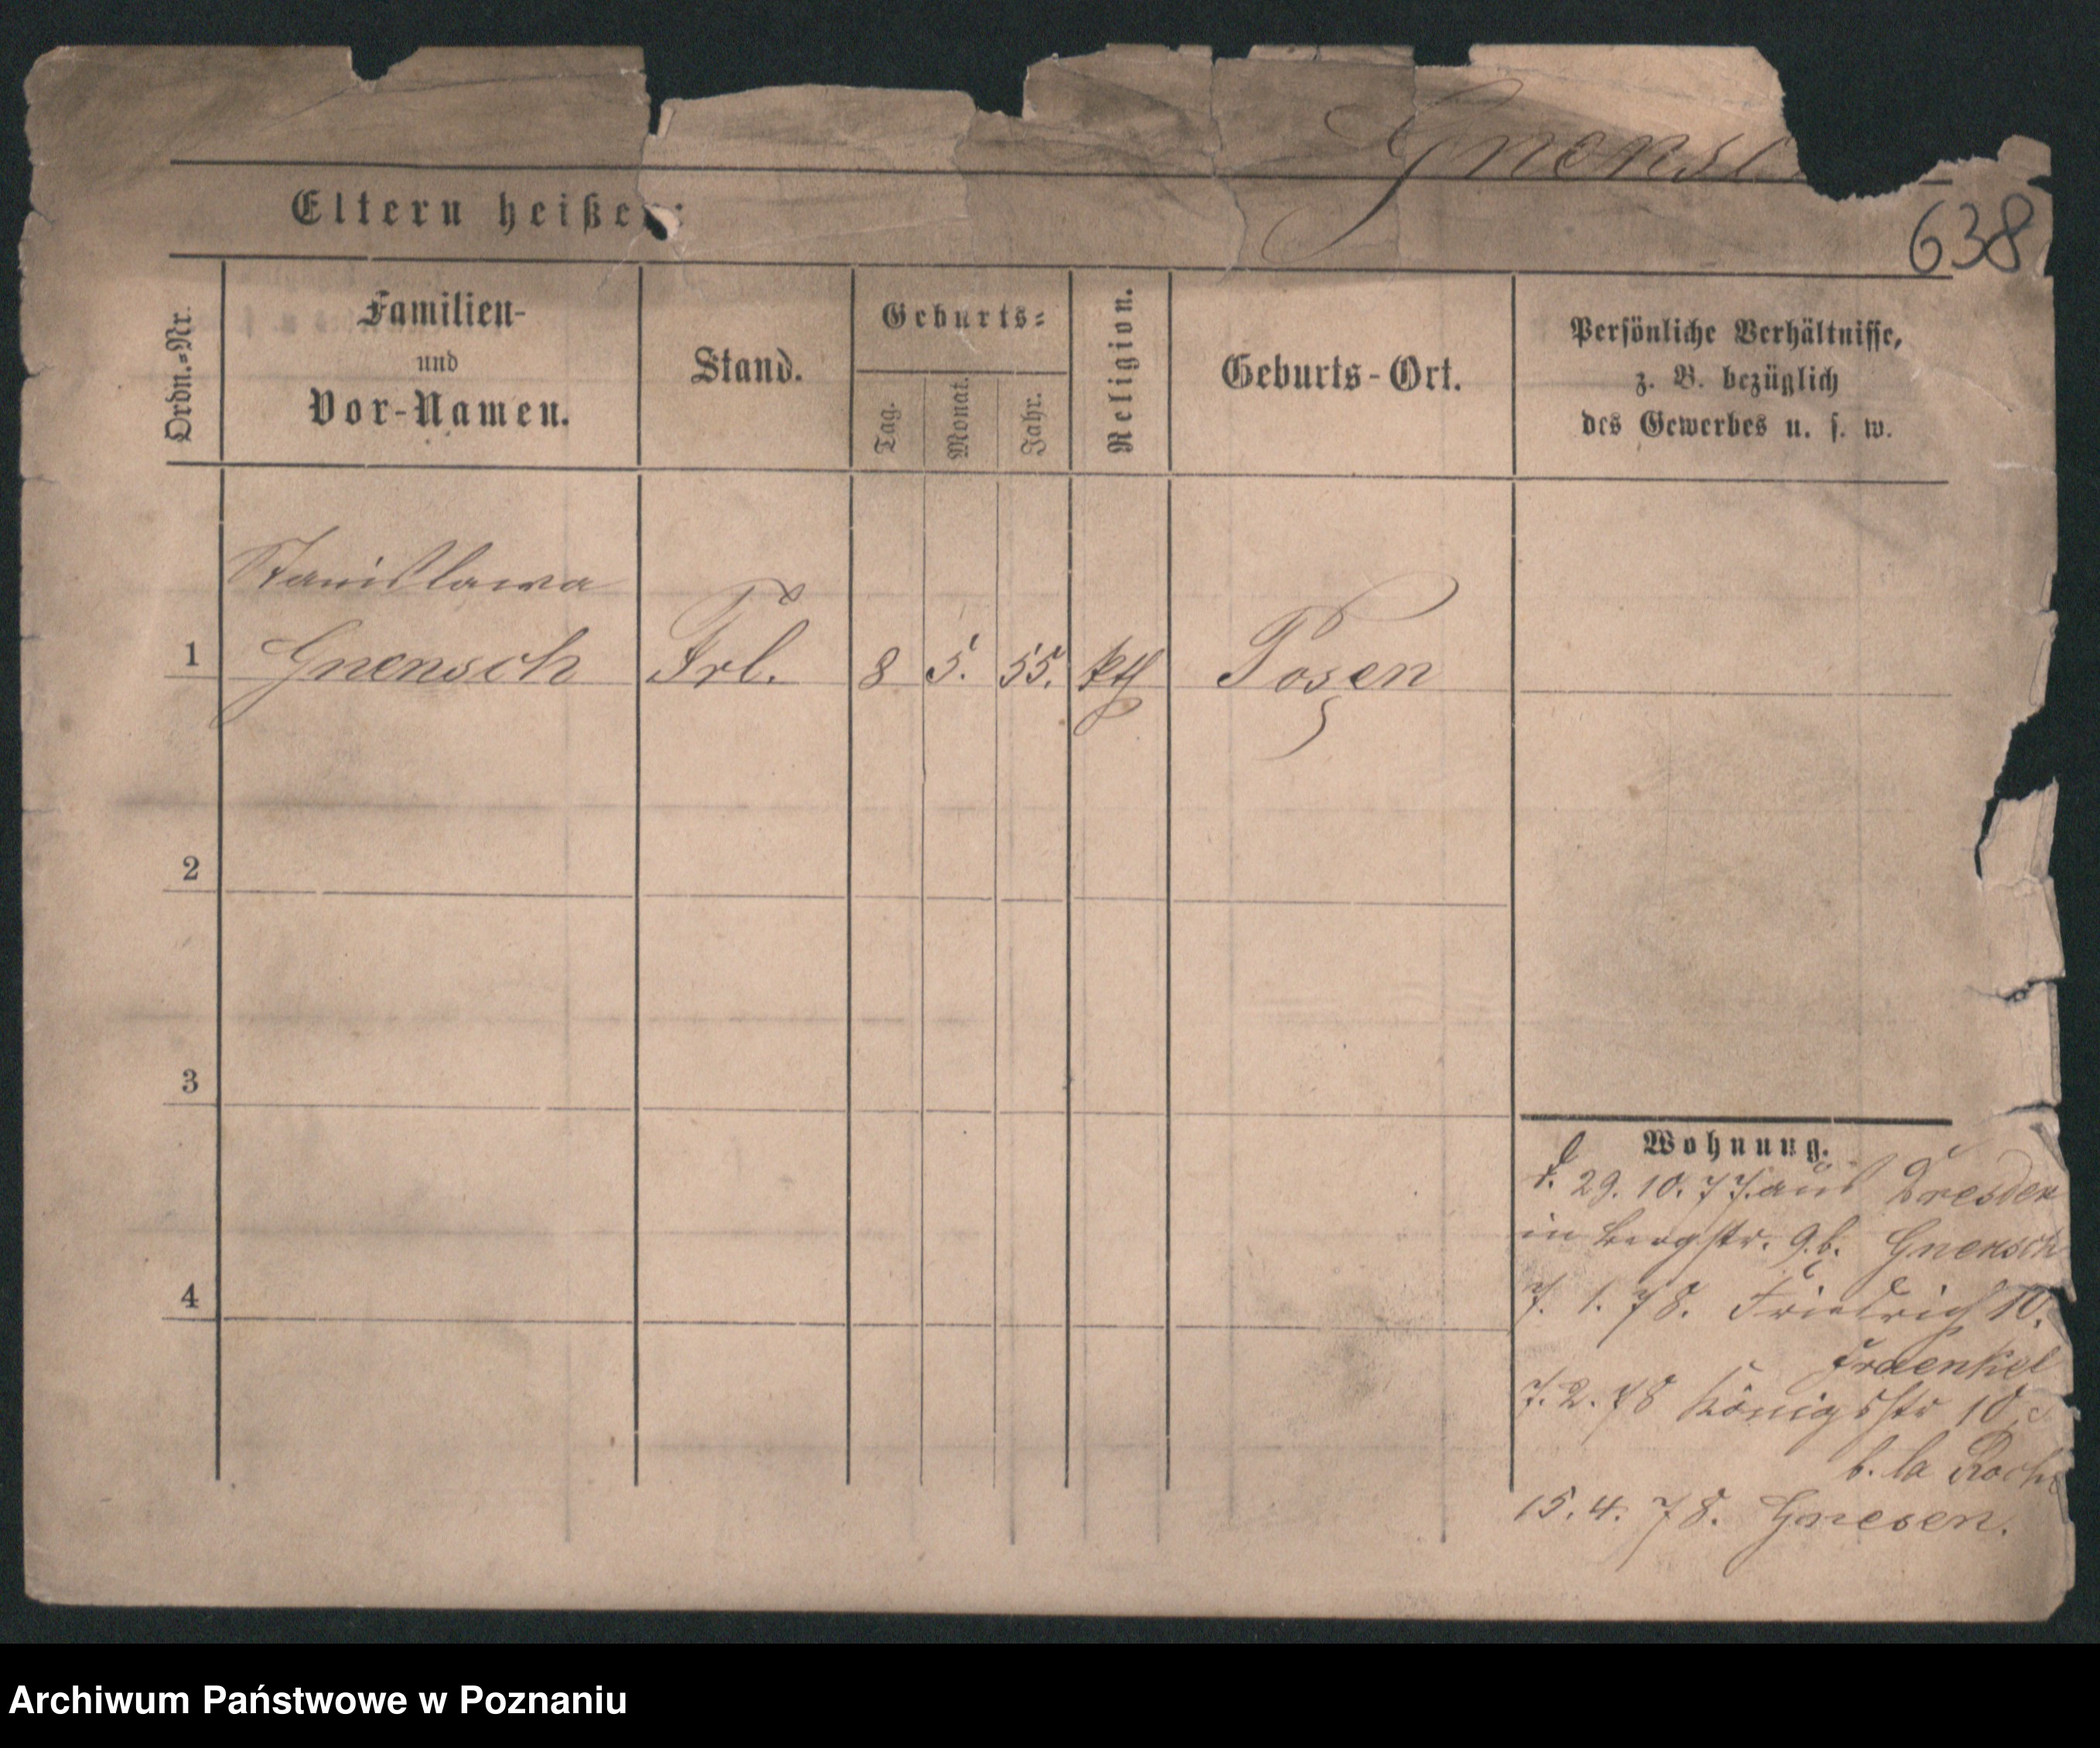 Gnensc
638
Eltern heißen:
Ordn.-Nr.
Familien-
und
Vor-Namen.
Stand.
Geburts-
Tag.
Monat.
Jahr.
Religion.
Geburts-Ort.
Persönliche Verhältnisse,
z. B. bezüglich
des Gewerbes u. s. w.
Stanislawa
1 Gnensch Frl. 8 5. 55. kth Posen
2
3
4
Wohnung.
29. 10. 77. aus Dresden
in Bergstr. 9. b. Gnensch
7. 1. 78. Friedrich 10.
Fraenkel
7. 2. 78 Königsstr 10
b. la Roche
15. 4. 78. Gnesen.
Archiwum Państwowe w Poznaniu